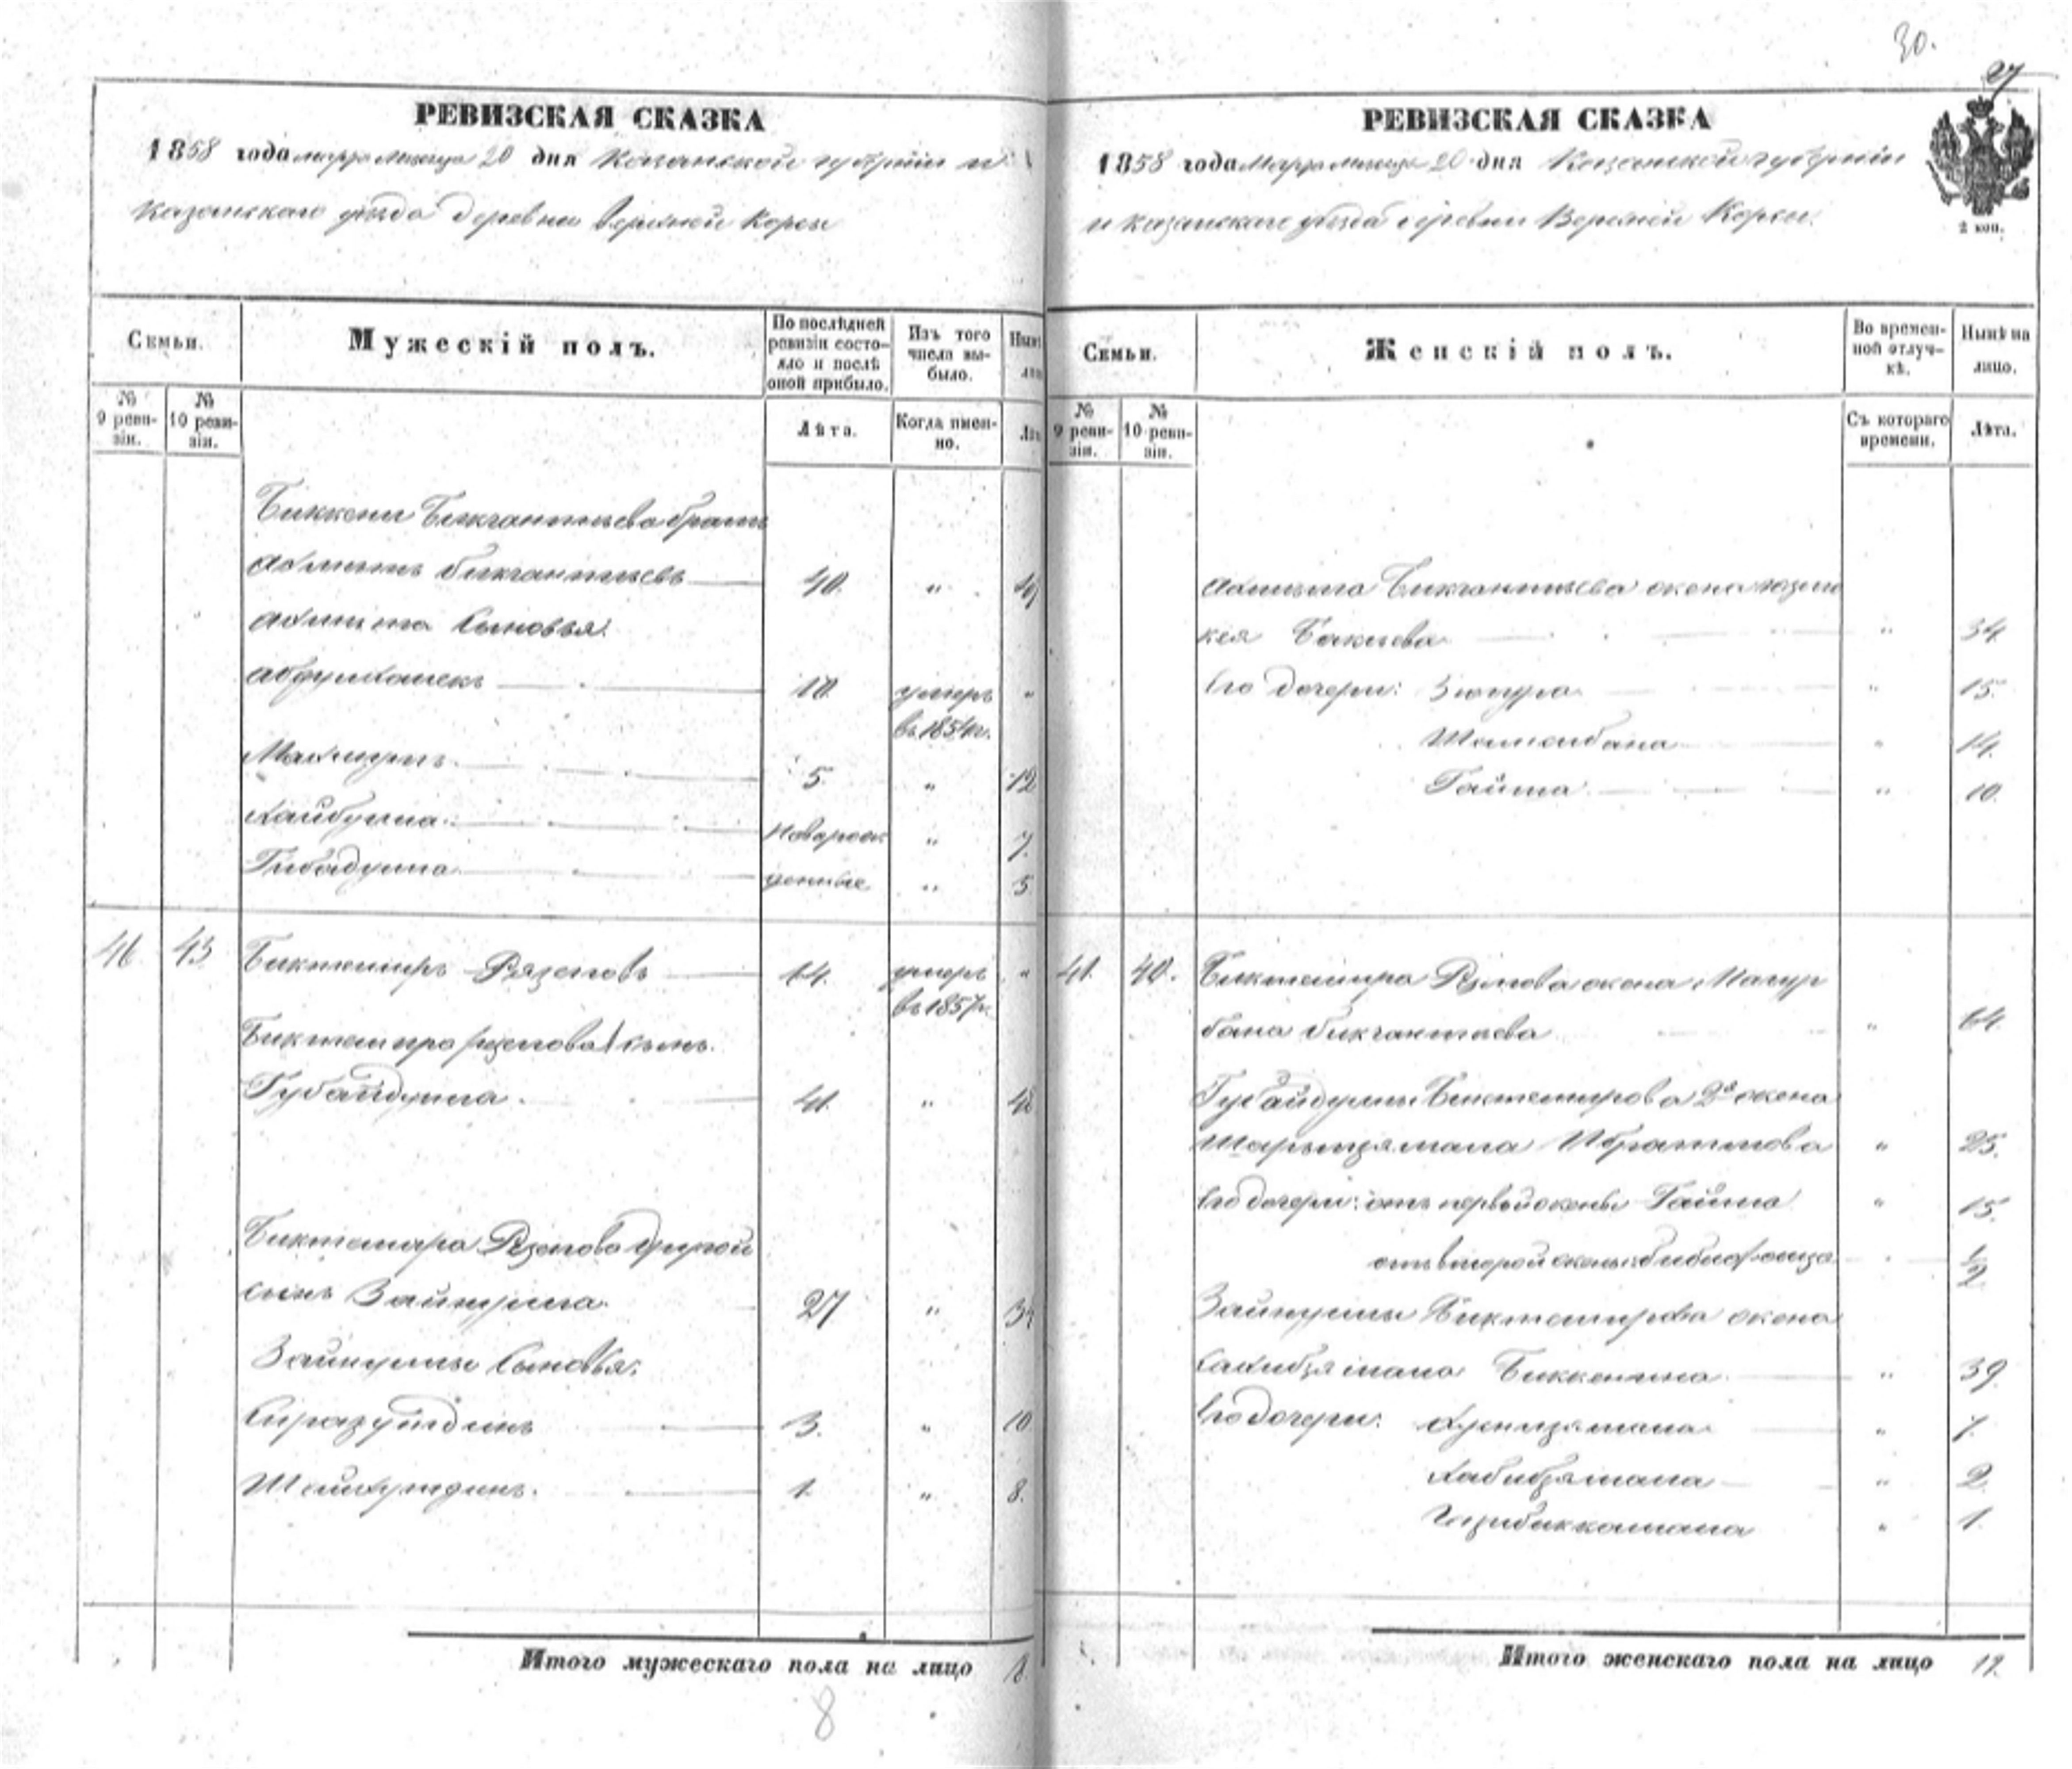 30.
27
РЕВИЗСКАЯ СКАЗКА
1858 года марта месяца 20 дня Казанской губернии и
Казанского уезда деревни Верхней Корсы
Семьи.
Мужескій полъ.
По послѣдней ревизіи состояло и послѣ оной прибыло.
Изъ того числа выбыло.
№ 9 ревизіи.
№ 10 ревизіи.
Лѣта.
Когда именно.
Биккени Бикчантаева братъ
Ахметъ Бикчантаевъ 40. "
Ахмета сыновья:
Абдулхаликъ 10 умеръ "
въ 1854 г.
5. " 12
новорож " 7.
Гибадулла денные " 5
46 43 Биктемиръ Рязяповъ 64. умеръ "
въ 1857 г.
Биктемира сынъ.
Губайдулла. 41. " 48
Биктемира другой
сынъ Зайнулла. 27 " 34
Зайнуллы сыновья:
Сиразутдинъ 3. " 10
Шайхутдинъ. 1. " 8.
Итого мужескаго пола на лицо 8
8
РЕВИЗСКАЯ СКАЗКА
1858 года Марта месяца 20 дня Казанской губерніи
и Казанскаго уезда деревни Верхней Корсы.
2 коп.
Семьи.
Женскій полъ.
Во временной отлучкѣ.
Нынѣ на лицо.
№ 9 ревизіи.
№ 10 ревизіи.
Съ котораго времени.
Лѣта.
Ахмета Бикчантаева жена
Бакиева " 34
Его дочери: Зюгура " 15.
Шамсибана " 14.
Гайша " 10.
Биктемира жена Магур
бана Бикчантаева " 64
Губайдуллы Биктемирова 2я жена
Ибрагимова " 25.
Его дочери: отъ первой жены Гайша " 15.
отъ второй жены
Зайнуллы Биктемирова жена
Биккенина " 39.
Его дочери: " 7.
Хабибзямала " 2
" 1.
Итого женскаго пола на лицо 12.